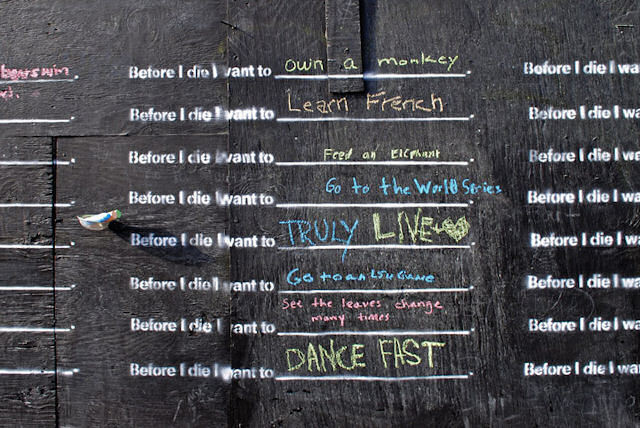 bears win.
Before I die I want to own a monkey.
Before I die I wa
Before I die I want to Learn French.
Before I die I wa
Before I die I want to Feed an Elephant.
Before I die I wa
Before I die I want to Go to the World Series
Before I die I wa
Before I die I want to TRULY LIVE
Before I die I wa
Before I die I want to Go to an LSU Game
Before I die I wa
Before I die I want to See the leaves change
many times.
Before I die I wa
Before I die I want to DANCE FAST.
Before I die I wa